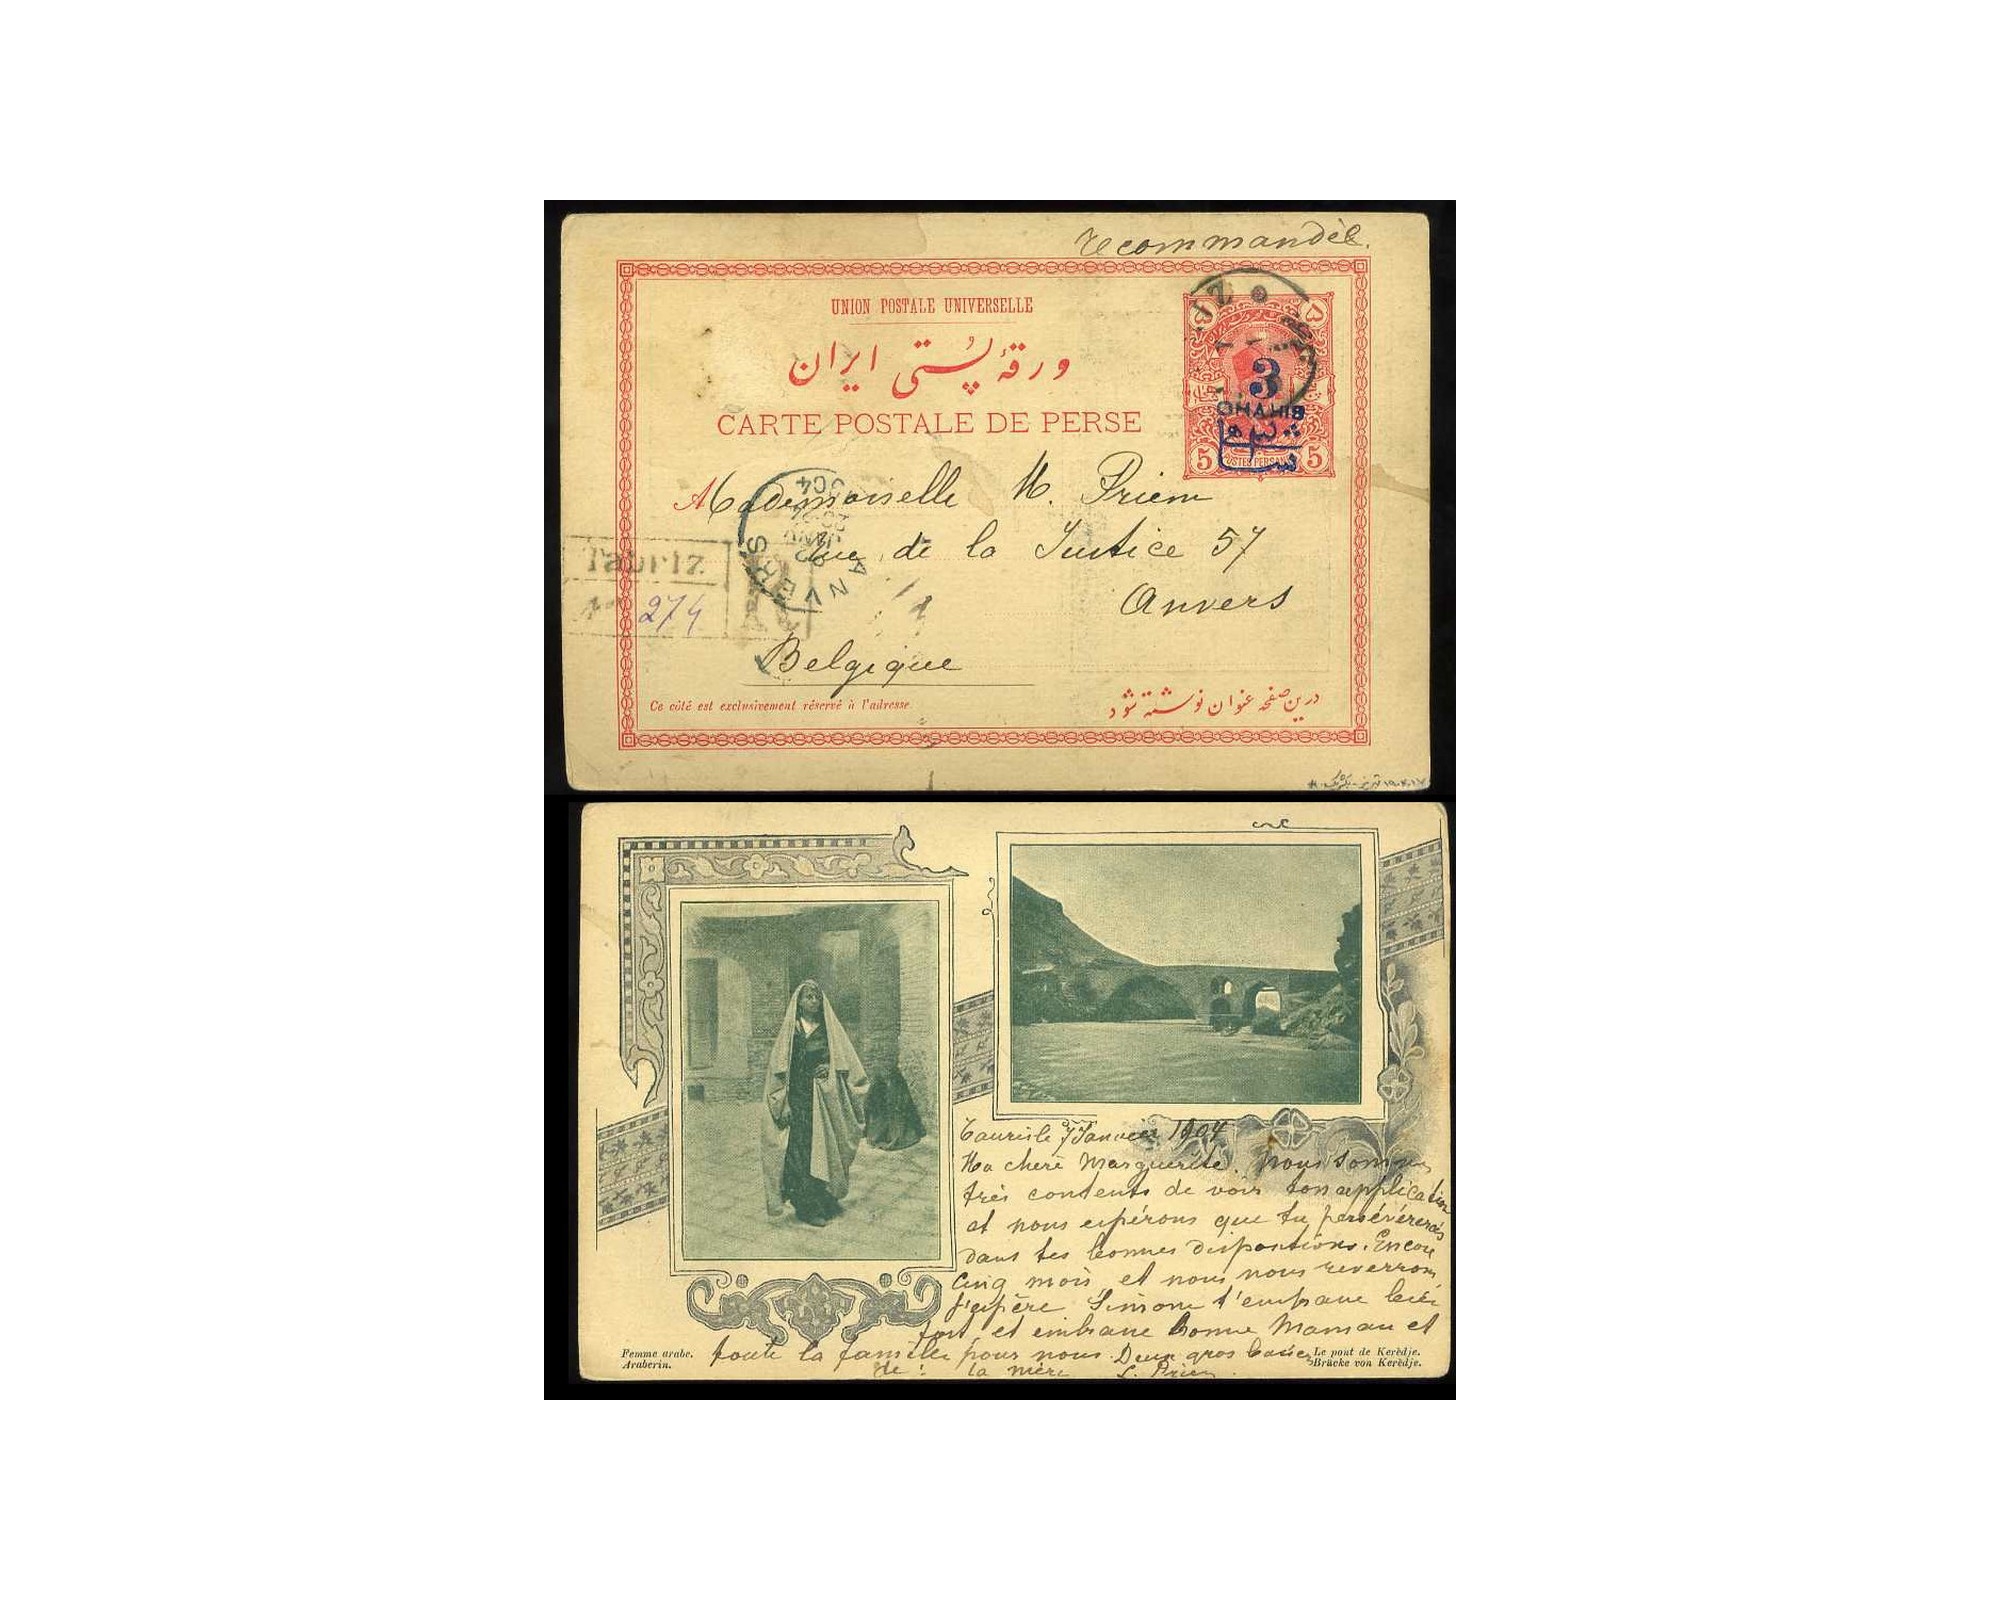 recommandée.
UNION POSTALE UNIVERSELLE
ورقهٔ پُستی ایران
CARTE POSTALE DE PERSE
3
CHAHIS
5 POSTES PERSANES 5
Mademoiselle M. Priem
rue de la Justice 57
Anvers
Belgique
Tauriz
R
No 274
ANVERS
Ce côté est exclusivement réservé à l'adresse.
درین صفحه عنوان نوشته شود
Tauris le 7 Janvier 1904
Ma chère Marguerite. Nous sommes
très contents de voir ton application
et nous espérons que tu persévéreras
dans tes bonnes dispositions. Encore
Cinq mois et nous nous reverrons
j'espère Simone t'embrasse bien
fort et embrasse bonne Maman et
toute la famille pour nous. Deux gros baisers
de : la mère S. Priem.
Femme arabe.
Araberin.
Le pont de Kerèdje.
Brücke von Kerèdje.